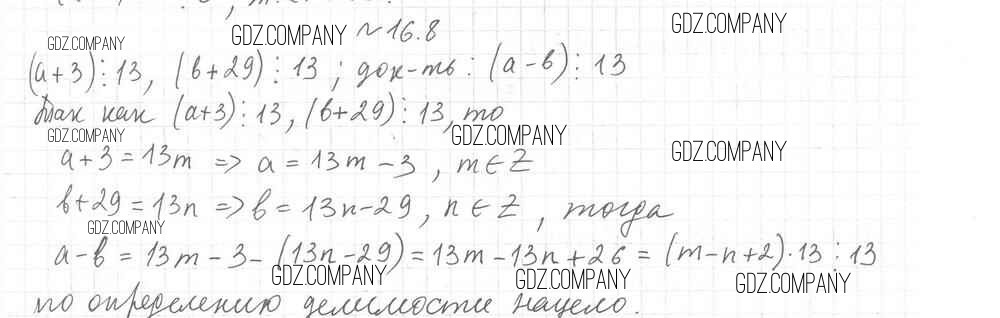 GDZ.COMPANY GDZ.COMPANY № 16.8 GDZ.COMPANY
(a+3)⋮13, (b+29)⋮13; док-ть: (a-b)⋮13
Так как (a+3)⋮13, (b+29)⋮13, то
GDZ.COMPANY GDZ.COMPANY GDZ.COMPANY
a+3=13m => a=13m-3, m∈Z
b+29=13n => b=13n-29, n∈Z, тогда
GDZ.COMPANY
a-b=13m-3-(13n-29)=13m-13n+26=(m-n+2)·13⋮13
GDZ.COMPANY GDZ.COMPANY GDZ.COMPANY
по определению делимости нацело.